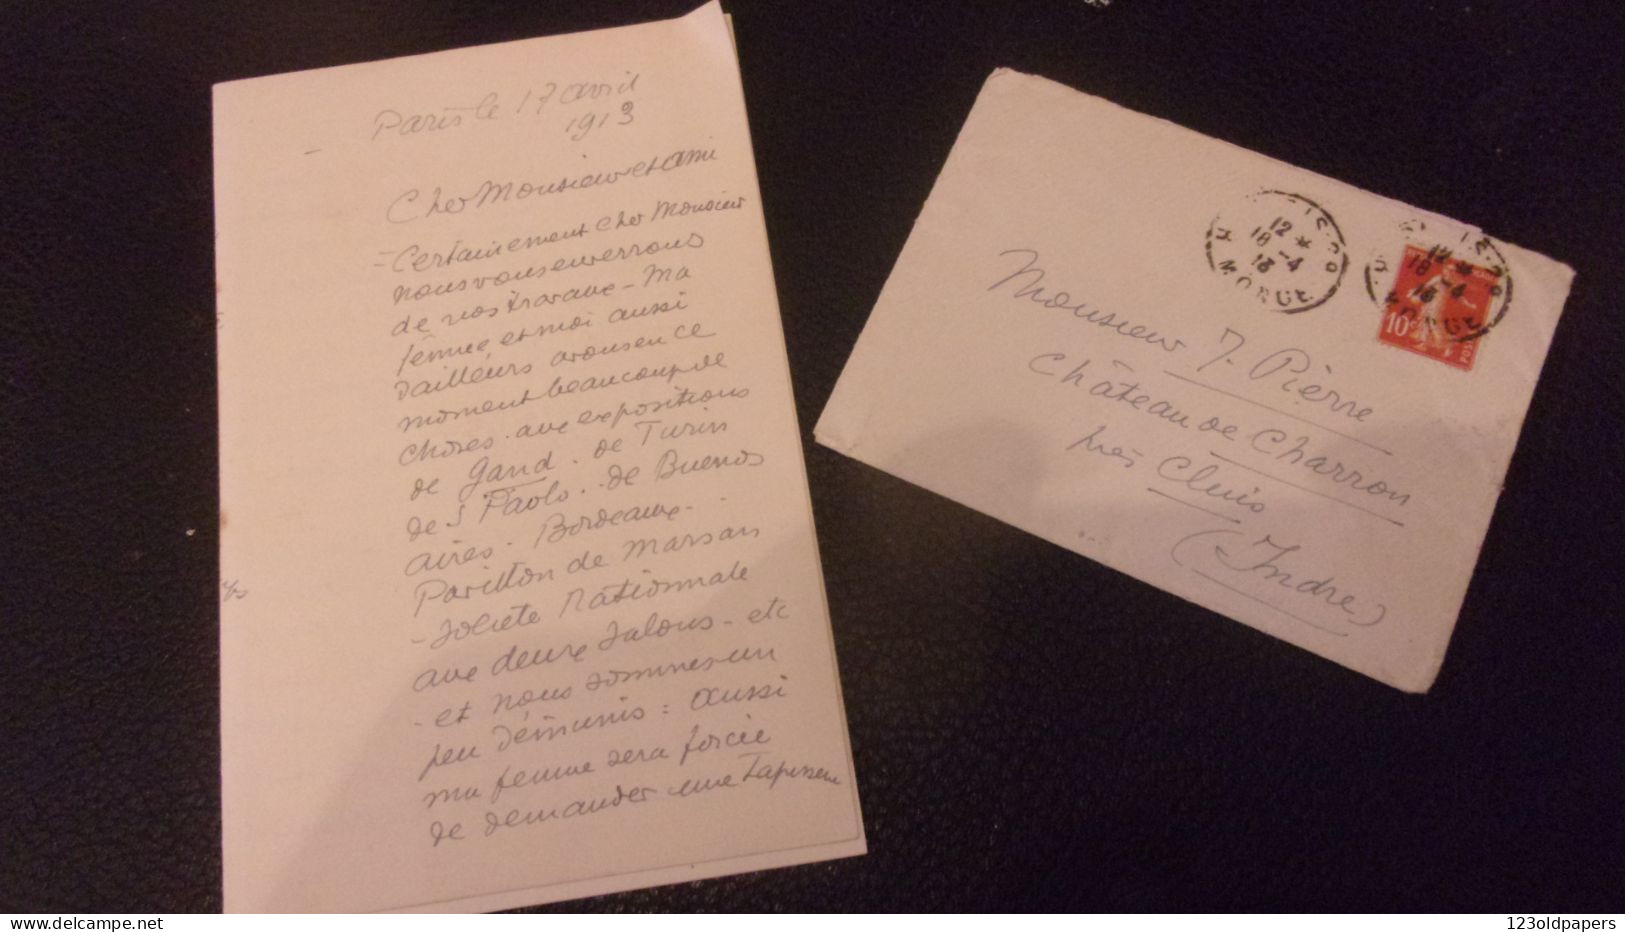 Paris le 17 avril
1913
Cher Monsieur et ami
- Certainement cher Monsieur
nous vous enverrons
de nos travaux - Ma
femme et moi aussi
d'ailleurs avons en ce
moment beaucoup de
choses aux expositions
de Gand. de Turin
de S Paolo. de Buenos
aires. Bordeaux.
Pavillon de Marsan
- Société Nationale
aux deux Salons - etc
- et nous sommes un
peu démunis : aussi
ma femme sera forcée
de demander une Tapisserie
Monsieur J. Pierre
Château de Charron
près Cluis
(Indre)
12 *
18 -4
13
R. MONGE
12 *
18 -4
13
10c
POSTES
delcampe.net
123oldpapers